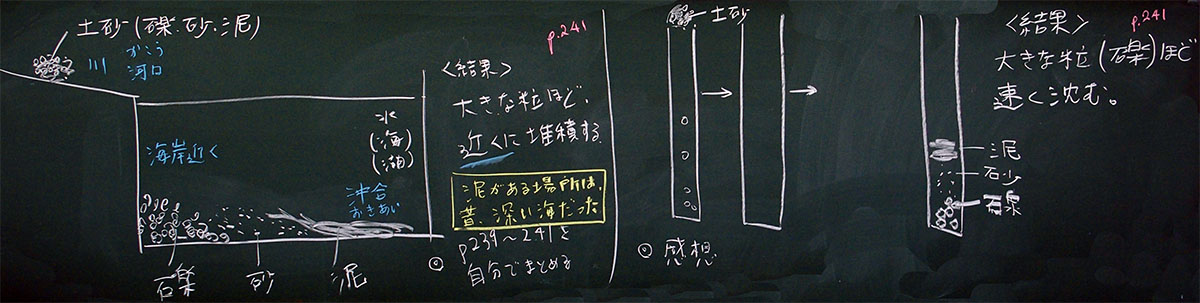 土砂(礫.砂.泥)
川
がこう
河口
海岸近く
水
(海)
(湖)
沖合
おきあい
礫
砂
泥
p.241
<結果>
大きな粒ほど、
近くに堆積する
泥がある場所は、
昔、深い海だった
◎ p239~241を
自分でまとめる
土砂
◎ 感想
泥
砂
礫
p.241
<結果>
大きな粒(礫)ほど
速く沈む。